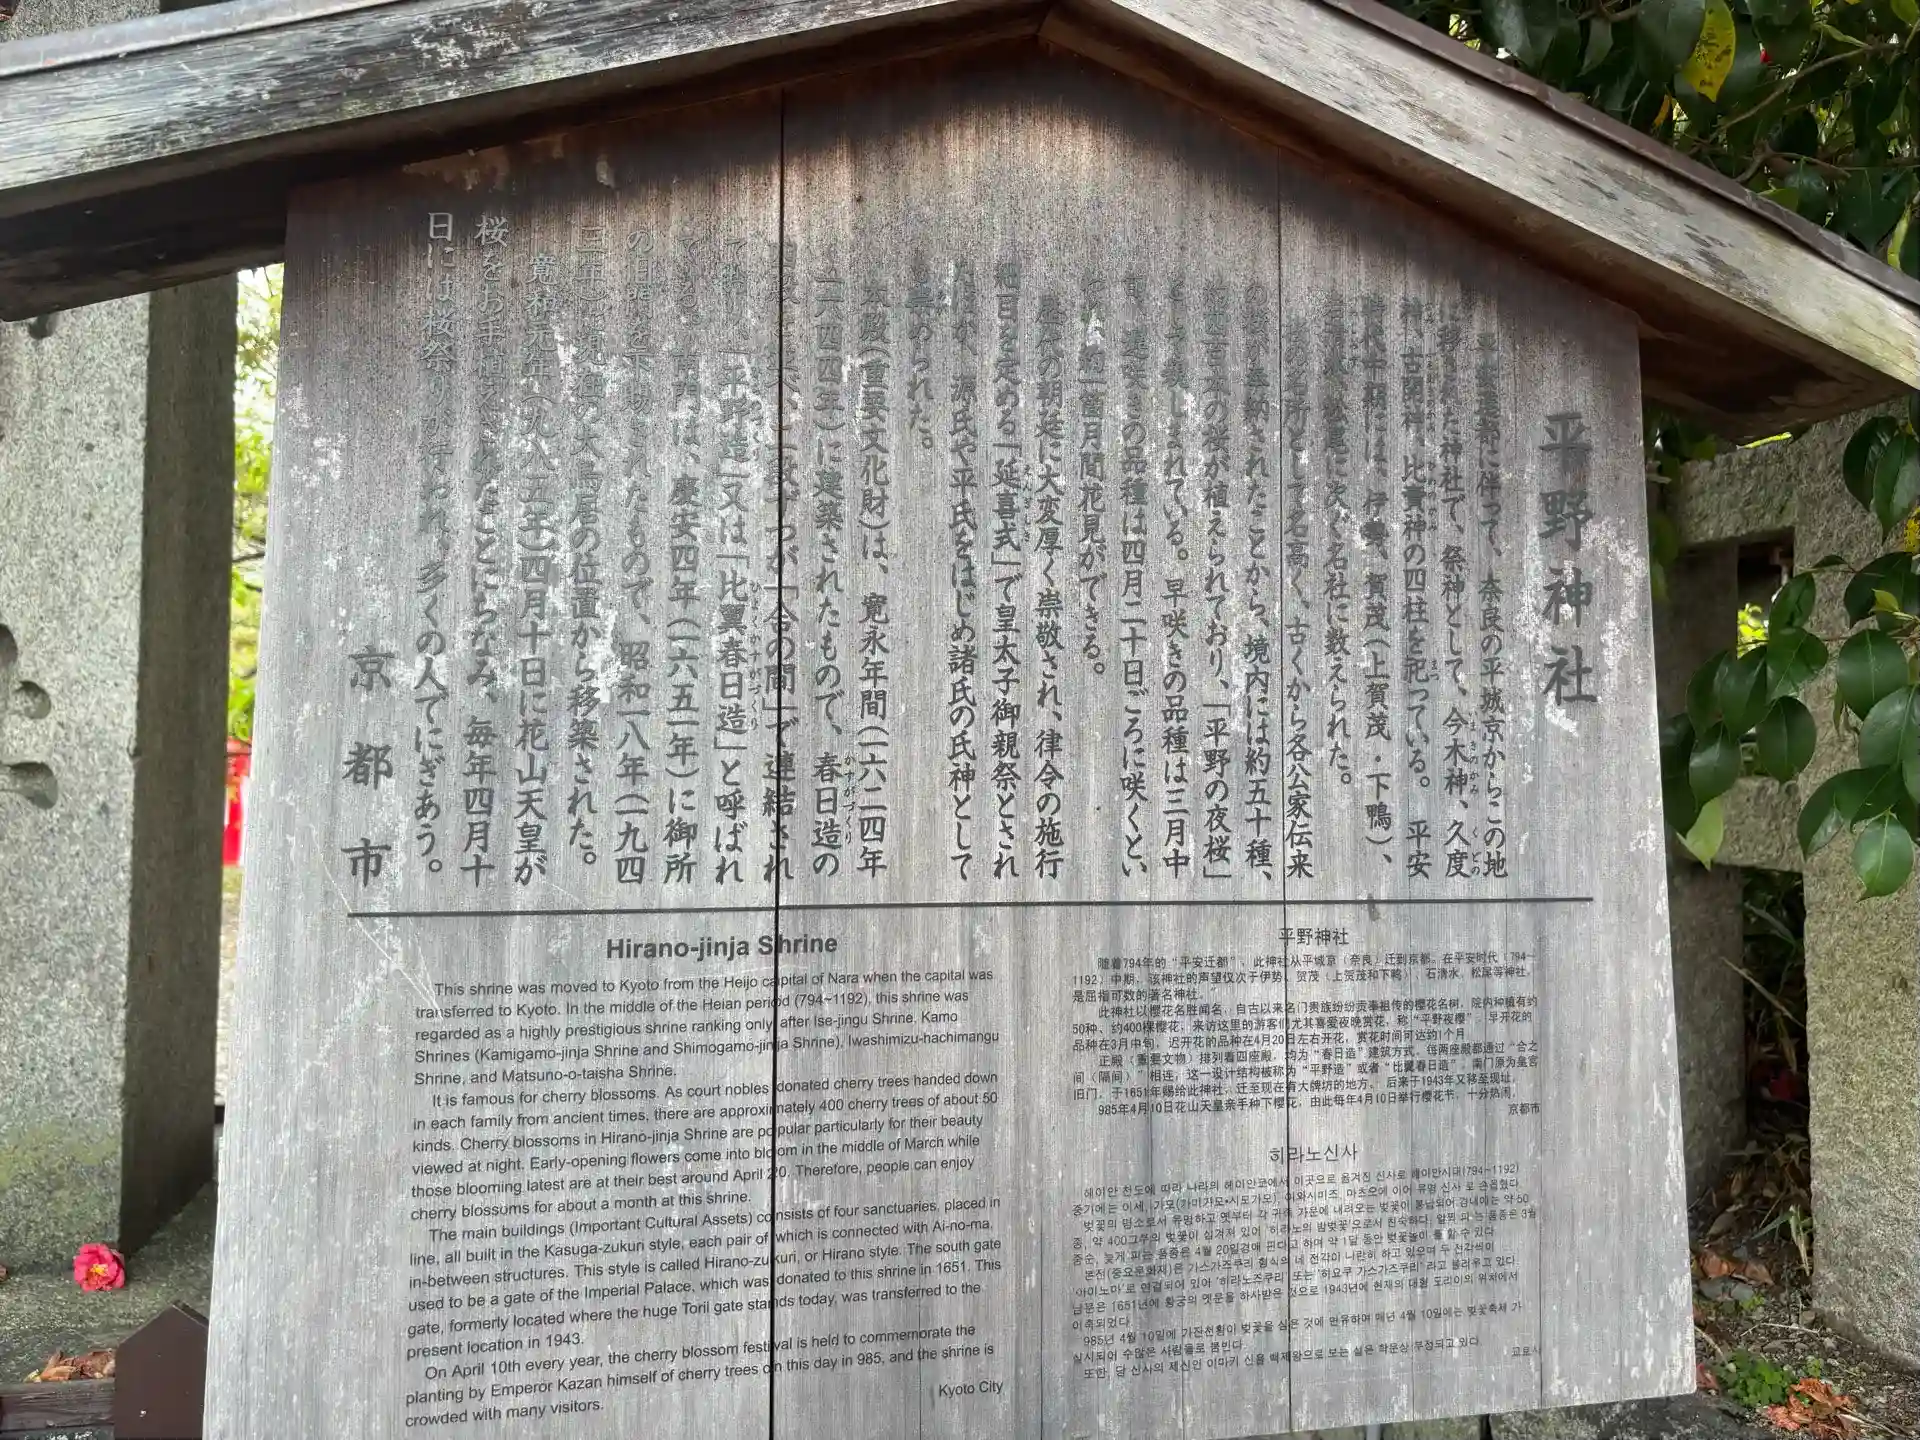 平野神社
平安遷都に伴って、奈良の平城京からこの地
に移された神社で、祭神として、今木神、久度
神、古開神、比賣神の四柱を祀っている。平安
時代中期には、伊勢、賀茂（上賀茂・下鴨）、
石清水、松尾に次ぐ名社に数えられた。
桜の名所として名高く、古くから各公家伝来
の桜が奉納されたことから、境内には約五十種、
約四百本の桜が植えられており、「平野の夜桜」
として親しまれている。早咲きの品種は三月中
旬、遅咲きの品種は四月二十日ごろに咲くとい
われ、約一箇月間花見ができる。
歴代の朝廷に大変厚く崇敬され、律令の施行
細目を定める「延喜式」で皇太子御親祭とされ
たほか、源氏や平氏をはじめ諸氏の氏神として
も崇められた。
本殿（重要文化財）は、寛永年間（一六二四年
〜一六四四年）に建築されたもので、春日造の
が「合の間」で連結され
て おり、「平野造」又は「比翼春日造」と呼ばれ
ている。南門は、慶安四年（一六五一年）に御所
の旧門を下賜されたもので、昭和一八年（一九四
三年）に現在の大鳥居の位置から移築された。
寛和元年（九八五年）四月十日に花山天皇が
桜をお手植えされたことにちなみ、毎年四月十
日には桜祭りが行われ、多くの人でにぎあう。
京都市
Hirano-jinja Shrine
This shrine was moved to Kyoto from the Heijo capital of Nara when the capital was
transferred to Kyoto. In the middle of the Heian period (794~1192), this shrine was
regarded as a highly prestigious shrine ranking only after Ise-jingu Shrine, Kamo
Shrines (Kamigamo-jinja Shrine and Shimogamo-jinja Shrine), Iwashimizu-hachimangu
Shrine, and Matsuno-o-taisha Shrine.
It is famous for cherry blossoms. As court nobles donated cherry trees handed down
in each family from ancient times, there are approximately 400 cherry trees of about 50
kinds. Cherry blossoms in Hirano-jinja Shrine are popular particularly for their beauty
viewed at night. Early-opening flowers come into bloom in the middle of March while
those blooming latest are at their best around April 20. Therefore, people can enjoy
cherry blossoms for about a month at this shrine.
The main buildings (Important Cultural Assets) consists of four sanctuaries, placed in
line, all built in the Kasuga-zukuri style, each pair of which is connected with Ai-no-ma,
in-between structures. This style is called Hirano-zukuri, or Hirano style. The south gate
used to be a gate of the Imperial Palace, which was donated to this shrine in 1651. This
gate, formerly located where the huge Torii gate stands today, was transferred to the
present location in 1943.
On April 10th every year, the cherry blossom festival is held to commemorate the
planting by Emperor Kazan himself of cherry trees on this day in 985, and the shrine is
crowded with many visitors.
Kyoto City
平野神社
随着794年的“平安迁都”，此神社从平城京（奈良）迁到京都。在平安时代（794~
1192）中期，该神社的声望仅次于伊势、贺茂（上贺茂和下鸭）、石清水、松尾等神社，
是屈指可数的著名神社。
此神社以樱花名胜闻名，自古以来名门贵族纷纷贡奉祖传的樱花名树，院内种植有约
50种、约400棵樱花，来访这里的游客们尤其喜爱夜晚赏花，称“平野夜樱”。早开花的
品种在3月中旬，迟开花的品种在4月20日左右开花，赏花时间可达约1个月。
正殿（重要文物）排列着四座殿，均为“春日造”建筑方式，每两座殿都通过“合之
间（隔间）”相连，这一设计结构被称为“平野造”或者“比翼春日造”。南门原为皇宫
旧门，于1651年赐给此神社，迁至现在有大牌坊的地方，后来于1943年又移至现址。
985年4月10日花山天皇亲手种下樱花，由此每年4月10日举行樱花节，十分热闹。
京都市
히라노신사
헤이안 천도에 따라 나라의 헤이안쿄에서 이곳으로 옮겨진 신사로 헤이안시대(794~1192)
중기에는 이세, 가모(카미가모•시모가모), 이와시미즈, 마츠오에 이어 유명 신사로 손꼽혔다.
벚꽃의 명소로서 유명하고 옛부터 각 귀족 가문에 내려오는 벚꽃이 봉납되어 경내에는 약 50
종, 약 400그루의 벚꽃이 심겨져 있어 '히라노의 밤벚꽃'으로서 친숙하다. 일찍 피는 품종은 3월
중순, 늦게 피는 품종은 4월 20일경에 핀다고 하며 약 1달 동안 벚꽃놀이를 할 수 있다.
본전(중요문화재)은 가스가즈쿠리 형식의 네 전각이 나란히 하고 있으며 두 전각씩이
'아이노마'로 연결되어 있어 '히라노즈쿠리' 또는 '히요쿠 가스가즈쿠리' 라고 불리우고 있다.
남문은 1651년에 황궁의 옛문을 하사받은 것으로 1943년에 현재의 대형 도리이의 위치에서
이축되었다.
985년 4월 10일에 가잔천황이 벚꽃을 심은 것에 연유하여 매년 4월 10일에는 벚꽃축제가
실시되어 수많은 사람들로 붐빈다.
또한, 당 신사의 제신인 이마키 신을 백제왕으로 보는 설은 학문상 부정되고 있다.
교토시